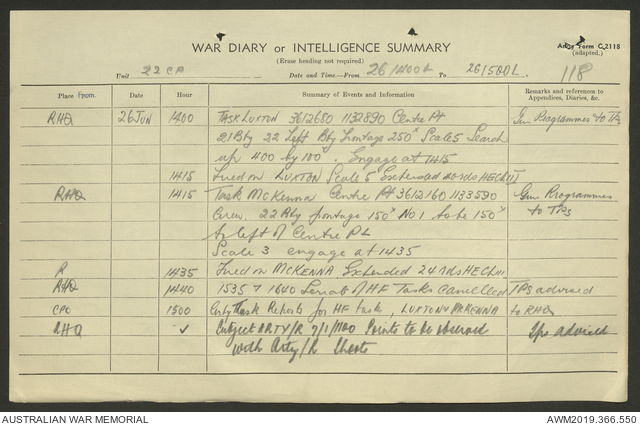 WAR DIARY or INTELLIGENCE SUMMARY
Army Form C.2118
(adapted.)
(Erase heading not required)
Unit 22 CP Date and Time.—From 26/1400L To 26/1500L. 118
Place from. Date Hour Summary of Events and Information Remarks and references to Appendices, Diaries, &c.
RHQ 26 JUN 1400 TASK LUXTON 3612650 1132890 Centre Pt Gun Programmes to TPs
21 Bty 22 Left Bty frontage 250ˣ Scale 5 Search
up 400 by 100ˣ. Engage at 1415
1415 Fired on LUXTON Scale 5 Expended 40 rds HE
RHQ 1415 Task McKenna Centre Pt 3612160 1133590 Gun Programmes
22 Bty frontage 150ˣ No 1 to be 150ˣ to TPs
to left of Centre Pt
Scale 3 engage at 1435
R 1435 Fired on McKENNA Expended 24 rds HE
RHQ 1440 1535 & 1640 Serials of HF Tasks Cancelled TPs advised
CPO 1500 Task Reports for HF task, LUXTON & McKENNA to RHQ
RHQ ✓ Subject ARTY/R Points to be observed Tps advised
with Arty/R Shoots
AUSTRALIAN WAR MEMORIAL AWM2019.366.550